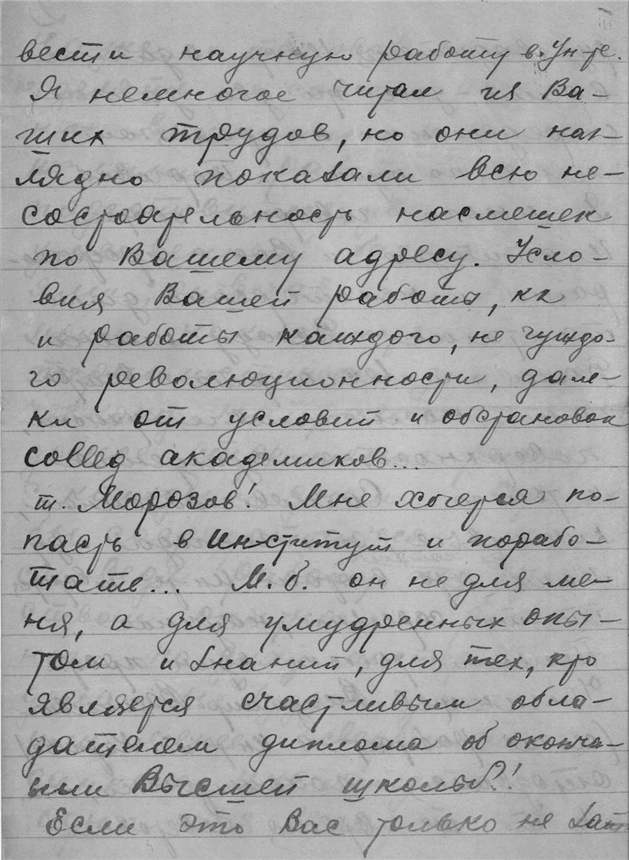 вести научную работу в Ун-те.
Я немногое читал из Ва-
ших трудов, но они наг-
лядно показали всю не-
состоятельность насмешек
по Вашему адресу. Усло-
вия Вашей работы, кк
и работы каждого, не чуждо-
го революционности, дале-
ки от условий и обстановок
совсед академиков...
т. Морозов! Мне хочется по-
пасть в Институт и порабо-
тать... М.б. он не для ме-
ня, а для умудренных опы-
том и знаний, для тех, кто
является счастливым обла-
дателем диплома об оконча-
нии Высшей школы?!
Если это Вас только не зат